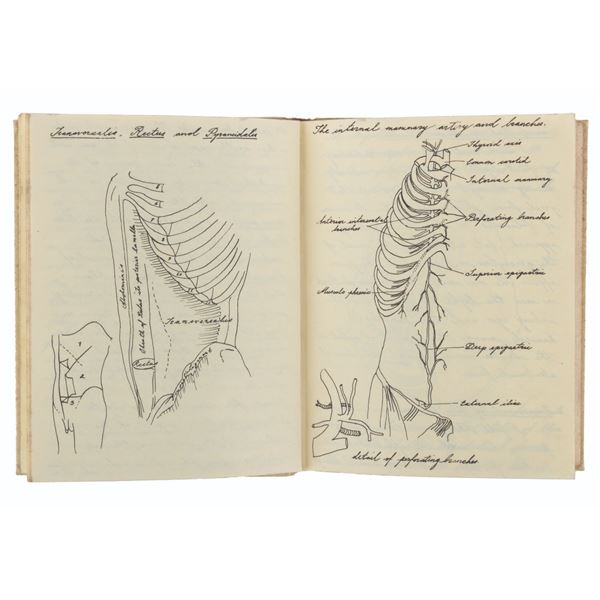 Transversalis, Rectus and Pyramidalis
Abdominis
Sheath of Rectus its posterior lamella
Transversalis
Rectus
1
2
3
The internal mammary artery and branches.
Thyroid axis
Common carotid
Internal mammary
Anterior intercostal
branches
Perforating branches
Superior epigastric
Musculo phrenic
Deep epigastric
External iliac
detail of perforating branches.